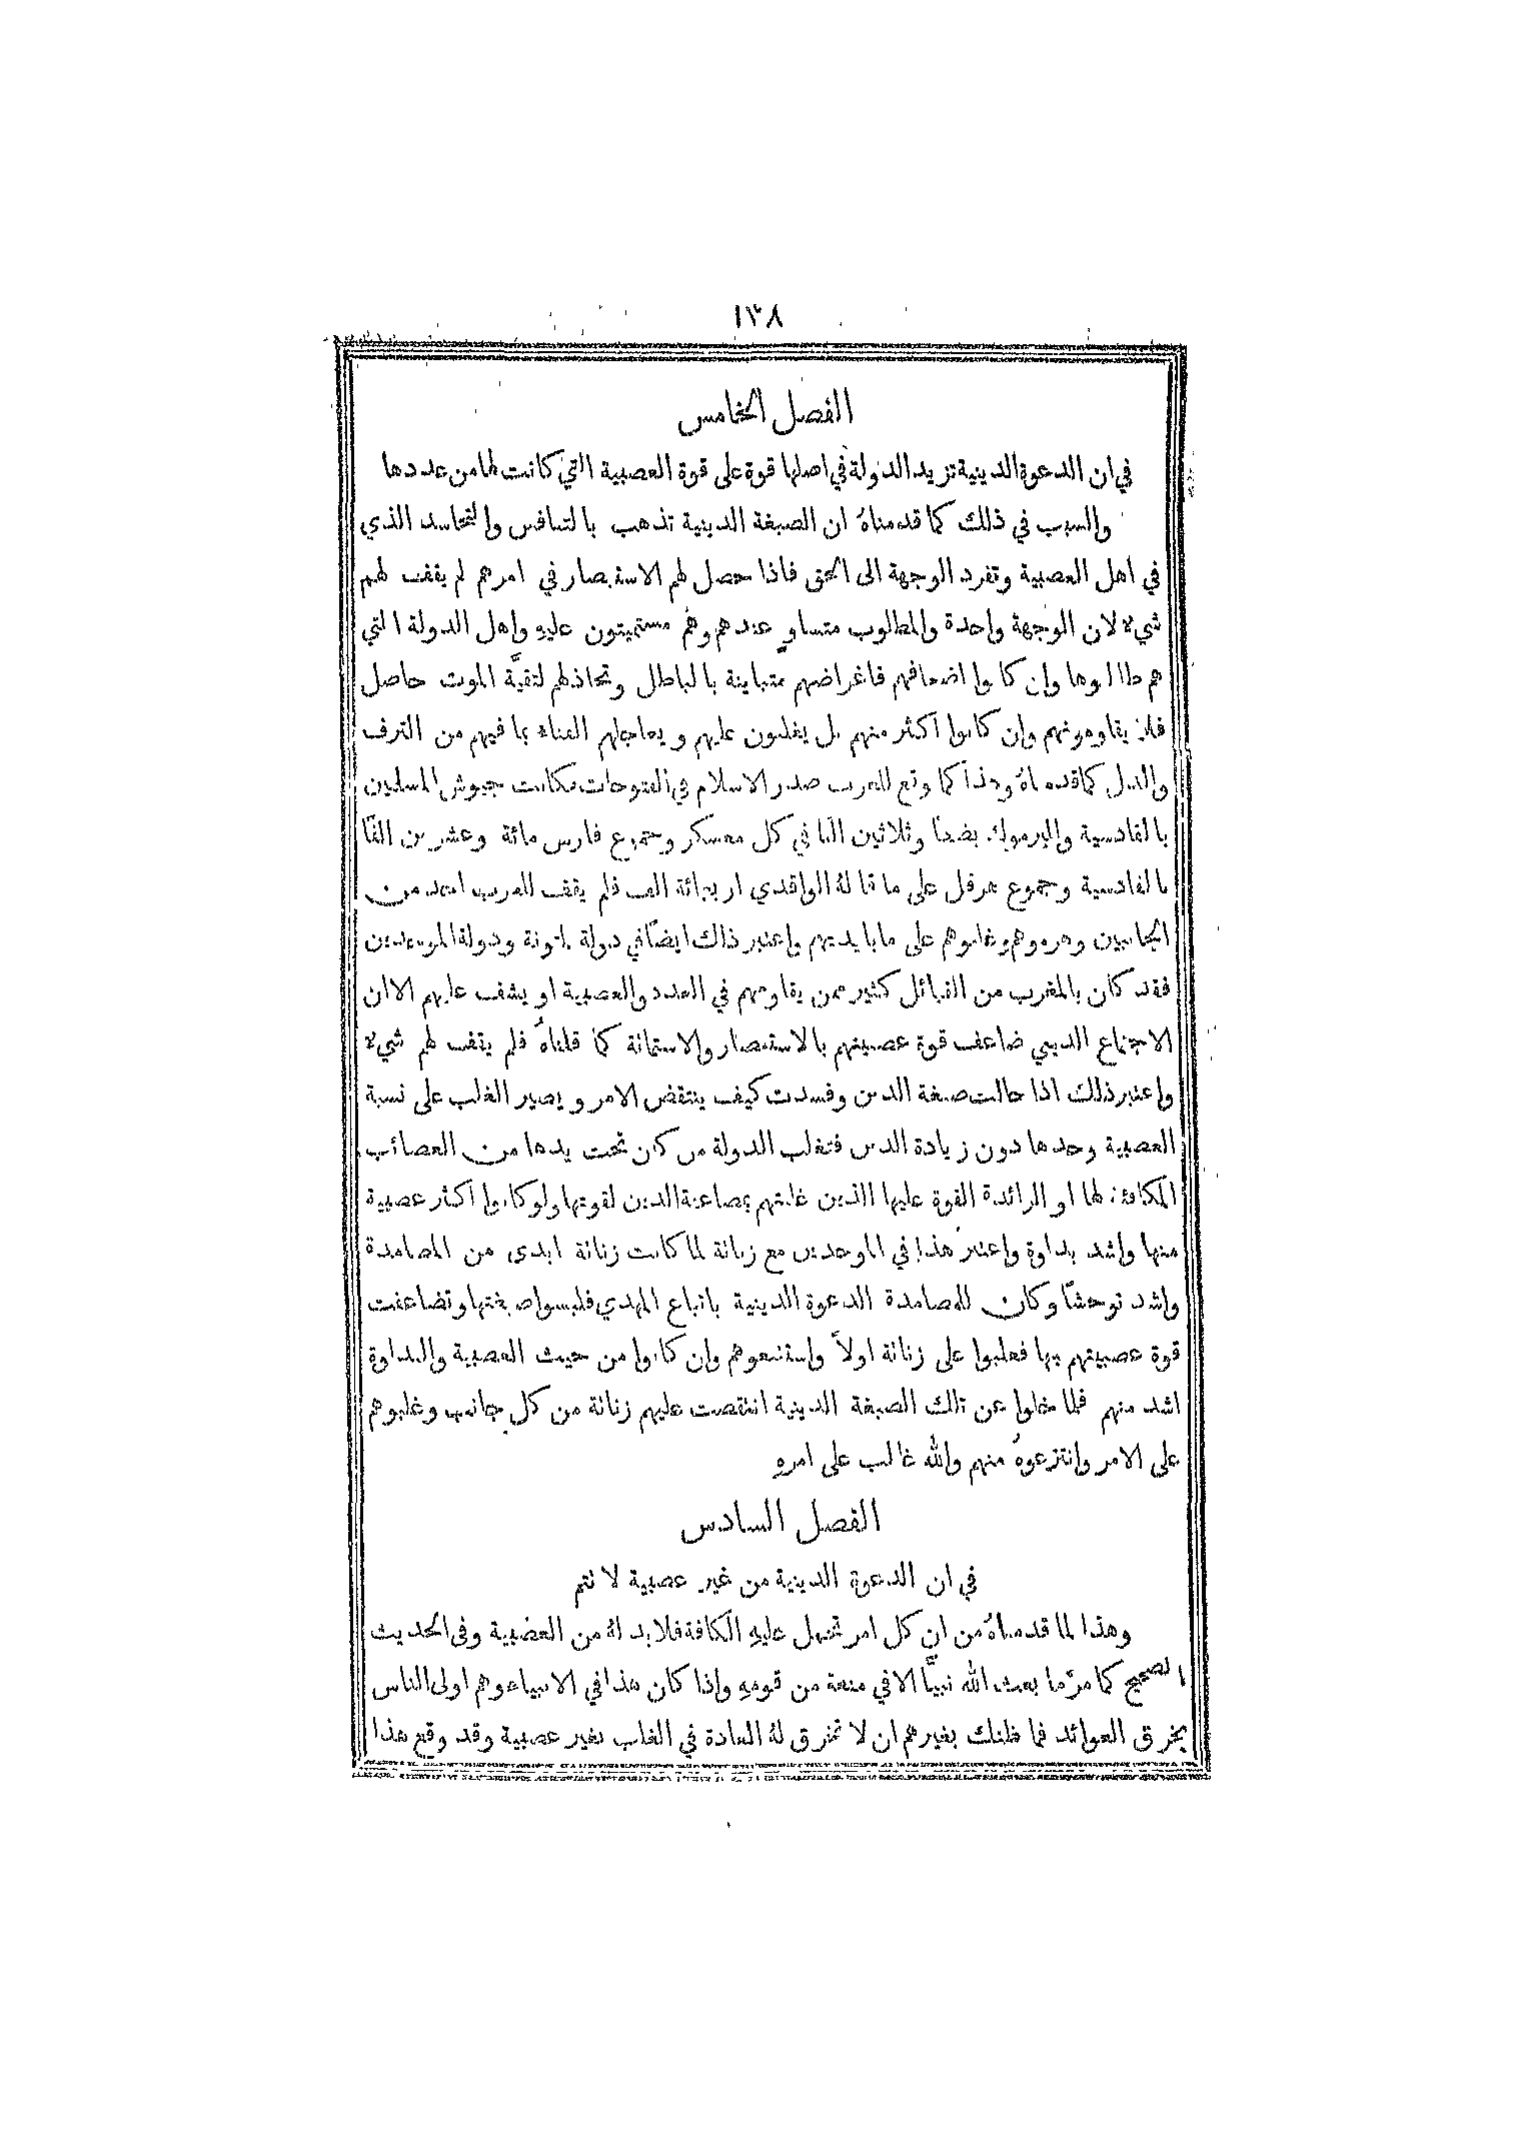 ١٣٨
الفصل الخامس
في ان الدعوة الدينية تزيد الدولة في اصلها قوة على قوة العصبية التي كانت لها من عددها
والسبب في ذلك كما قدمناهُ ان الصبغة الدينية تذهب بالتنافس والتحاسد الذي
في اهل العصبية وتفرد الوجهة الى الحق فاذا حصل لهم الاستبصار في امرهم لم يقف لهم
شيء لان الوجهة واحدة والمطلوب متساوٍ عندهم وهم مستميتون عليهِ واهل الدولة التي
هم طالبوها وان كانوا اضعافهم فاغراضهم متباينة بالباطل وتخاذلهم لتقيَّة الموت حاصل
فلا يقاومونهم وان كانوا اكثر منهم بل يغلبون عليهم ويعاجلهم الفناء بما فيهم من الترف
والذل كما قدمناهُ وهذا كما وقع للعرب صدر الاسلام في الفتوحات فكانت جيوش المسلمين
بالقادسية واليرموك بضعًا وثلاثين الفا في كل معسكر وجموع فارس مائة وعشرين الفًا
بالقادسية وجموع هرقل على ما قالهُ الواقدي اربعمائة الف فلم يقف للعرب احد من
الجانبين وهزموهم وغلبوهم على ما بايديهم واعتبر ذلك ايضًا في دولة لمتونة ودولة الموحدين
فقد كان بالمغرب من القبائل كثير ممن يقاومهم في العدد والعصبية او يشف عليهم الا ان
الاجتماع الديني ضاعف قوة عصبيتهم بالاستبصار والاستماتة كما قلناهُ فلم يقف لهم شيء
واعتبر ذلك اذا حالت صبغة الدين وفسدت كيف ينتقض الامر ويصير الغلب على نسبة
العصبية وحدها دون زيادة الدين فتغلب الدولة من كان تحت يدها من العصائب
المكافئة لها او الزائدة القوة عليها الذين غلبتهم بمضاعفة الدين لقوتها ولو كانوا اكثر عصبية
منها واشد بداوة واعتبر هذا في الموحدين مع زناتة لما كانت زناتة ابدى من المصامدة
واشد توحشًا وكان للمصامدة الدعوة الدينية باتباع المهدي فلبسوا صبغتها وتضاعفت
قوة عصبيتهم بها فغلبوا على زناتة اولاً واستتبعوهم وان كانوا من حيث العصبية والبداوة
اشد منهم فلما خلوا عن تلك الصبغة الدينية انتقضت عليهم زناتة من كل جانب وغلبوهم
على الامر وانتزعوهُ منهم والله غالب على امرهِ
الفصل السادس
في ان الدعوة الدينية من غير عصبية لا تتم
وهذا لما قدمناهُ من ان كل امر تحمل عليهِ الكافة فلا بد لهُ من العصبية وفي الحديث
الصحيح كما مرّ ما بعث الله نبيًّا الا في منعة من قومهِ واذا كان هذا في الانبياء وهم اولى الناس
بخرق العوائد فما ظنك بغيرهم ان لا تخرق لهُ العادة في الغلب بغير عصبية وقد وقع هذا